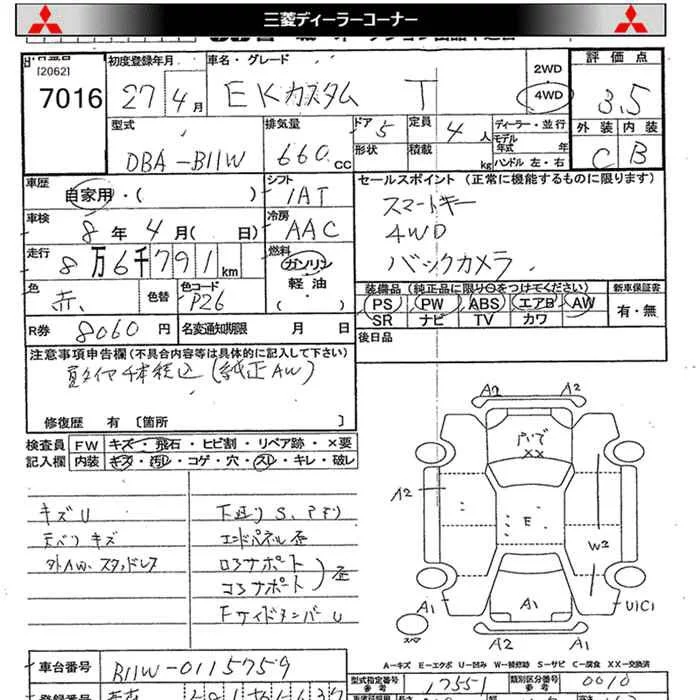 三菱ディーラーコーナー
[2062]
7016
初度登録年月
27 年 4 月
車名・グレード
EKカスタム T
2WD
4WD
評価点
3.5
外装 内装
C B
型式
DBA-B11W
排気量
660 cc
ドア 5
定員 4 人
形状
積載 kg
ディーラー・並行
モデル年式 年
ハンドル 左・右
車歴
自家用・( )
シフト
IAT
車検
8 年 4 月( 日)
冷房
AAC
走行
8万6千791km
燃料
ガソリン
軽油
( )
色
赤
色替
色コード
P26
R券 8060 円
名変通知期限 月 日
セールスポイント (正常に機能するものに限ります)
スマートキー
4WD
バックカメラ
装備品(純正品に限り○をつけてください)
PS PW ABS エアB AW
SR ナビ TV カワ
新車保証書
有・無
後日品
注意事項申告欄(不具合内容等は具体的に記入して下さい)
夏タイヤ4本積込(純正AW)
修復歴 有 〔箇所 〕
検査員
記入欄
FW キズ・飛石・ヒビ割・リペア跡・×要
内装 キズ・汚レ・コゲ・穴・スレ・キレ・破レ
キズU
天ベリ キズ
外AW、スタッドレス
下廻りS、
エンドパネル歪
ロアサポート
コアサポート
歪
FサイドメンバーU
A2 A2
××
A2
E
W2
A1
A1
U1C1
スペア
A2 A1
A-キズ E-エクボ U-凹み W-補修跡 S-サビ C-腐食 XX-交換済
車台番号
B11W-0115759
型式指定番号
参考
17551
類別区分番号
参考
0010
登録番号